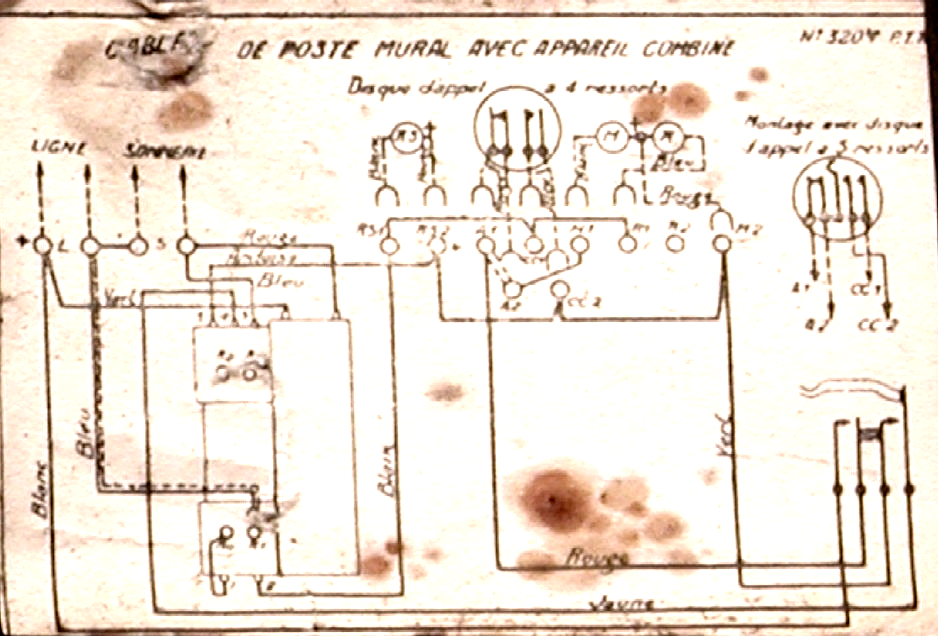 DE POSTE MURAL AVEC APPAREIL COMBINE
Nº 320
Disque d'appel a 4 ressorts
Montage avec disque
d'appel a 5 ressorts
LIGNE SONNERIE
RS M R
Blanc
Bleu
Rouge
+ L S RS1 RS2 A1 M1 R1 R2 M2
A2 CC2
A1 CC1
A2 CC2
Rouge
Bleu
Vert
Bleu
Blanc
Blanc
Vert
Rouge
Jaune